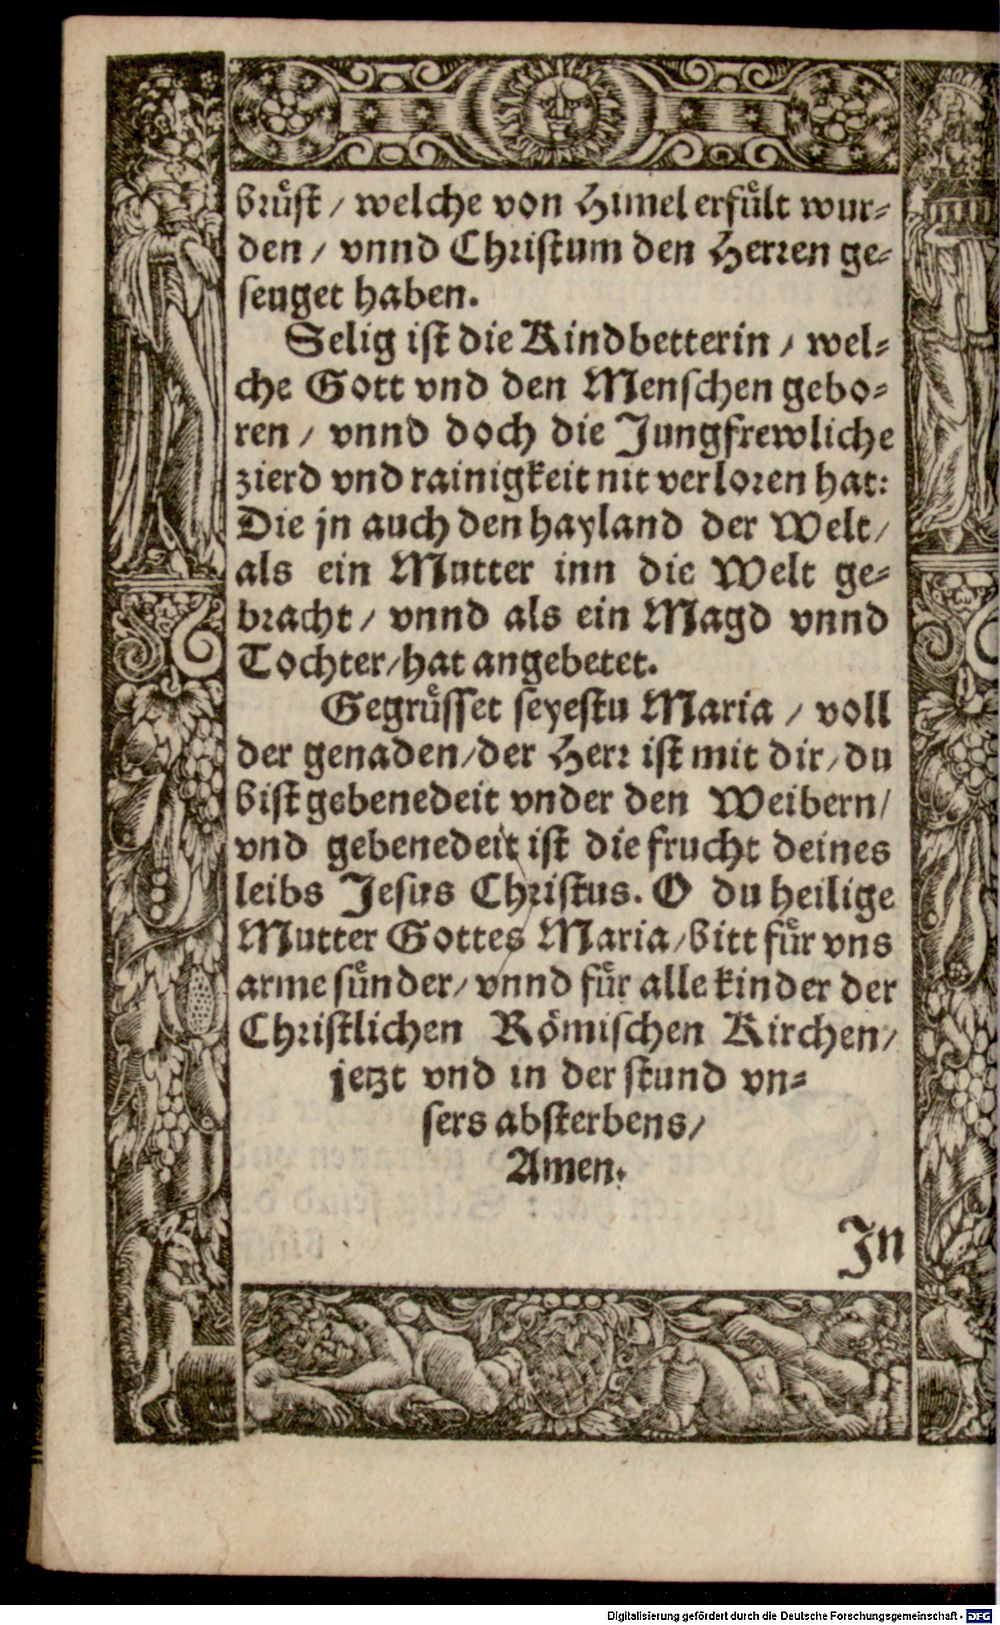 bruͤst / welche von Himel erfuͤlt wur⸗
den / vnnd Christum den Herren ge⸗
seuget haben.
Selig ist die Kindbetterin / wel⸗
che Gott vnd den Menschen gebo⸗
ren / vnnd doch die Jungfrewliche
zierd vnd rainigkeit nit verloren hat:
Die jn auch den hayland der Welt /
als ein Mutter inn die Welt ge⸗
bracht / vnnd als ein Magd vnnd
Tochter / hat angebetet.
Gegruͤsset seyestu Maria / voll
der genaden / der Herr ist mit dir / du
bist gebenedeit vnder den Weibern /
vnd gebenedeit ist die frucht deines
leibs Jesus Christus. O du heilige
Mutter Gottes Maria / bitt fuͤr vns
arme suͤnder / vnnd fuͤr alle kinder der
Christlichen Roͤmischen Kirchen /
jetzt vnd in der stund vn⸗
sers absterbens /
Amen.
Jn
Digitalisierung gefördert durch die Deutsche Forschungsgemeinschaft - DFG